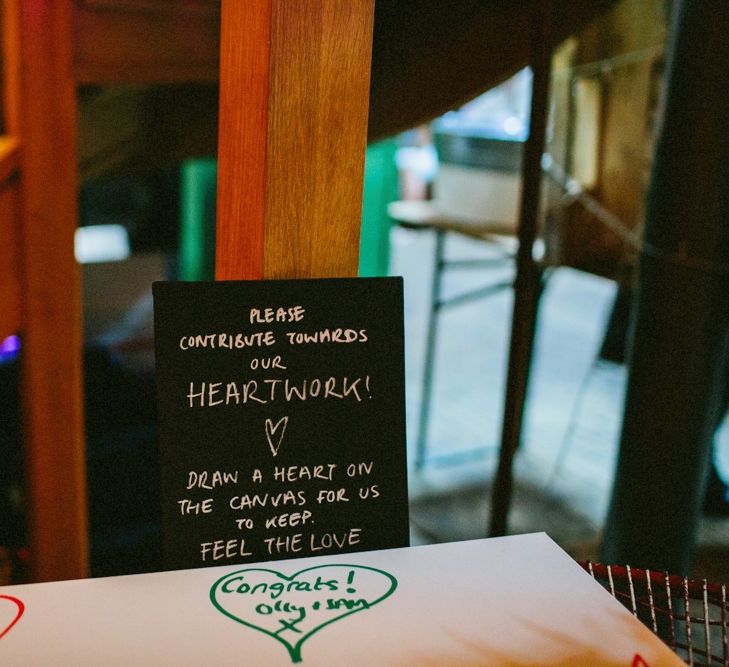 PLEASE
CONTRIBUTE TOWARDS
OUR
HEARTWORK!
DRAW A HEART ON
THE CANVAS FOR US
TO KEEP.
FEEL THE LOVE
Congrats!
Olly + SAM
X